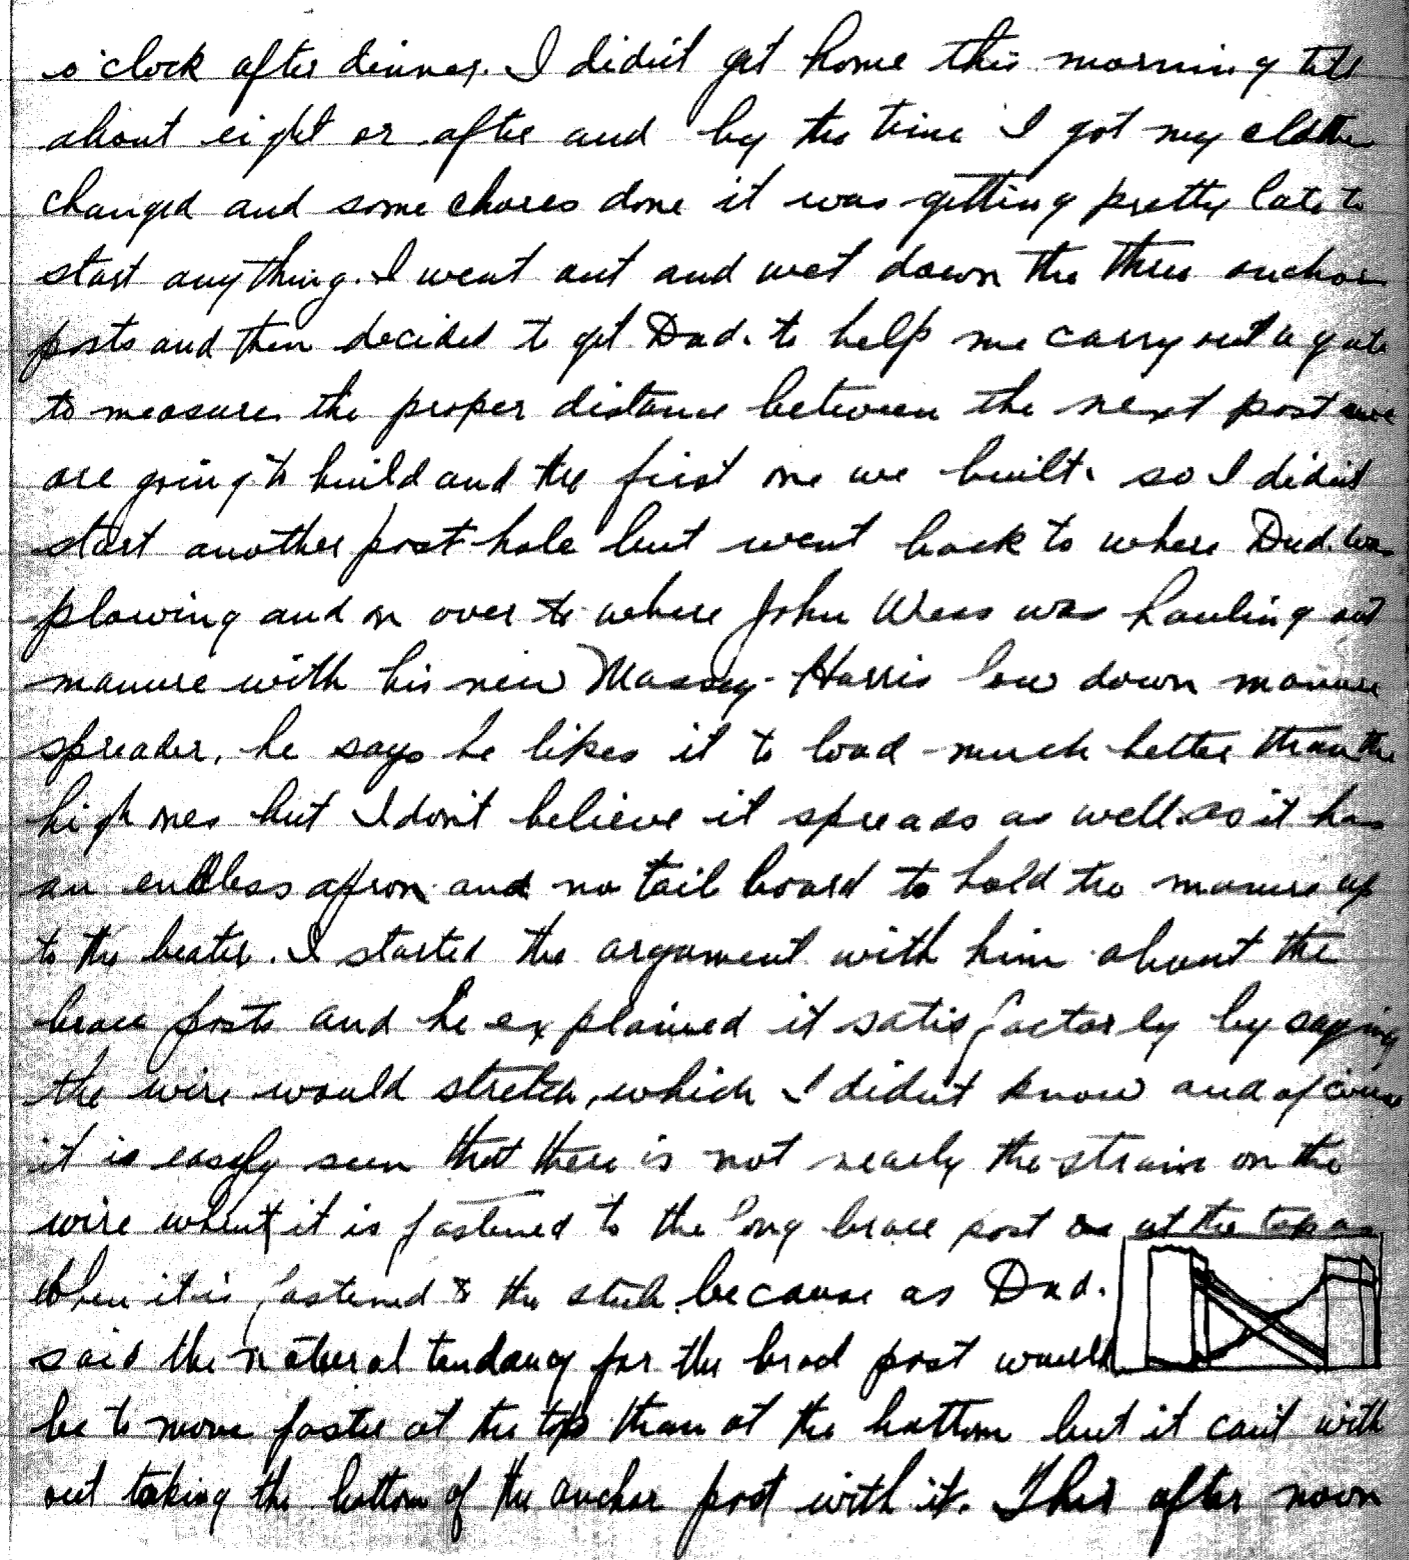 o'clock after dinner. I didn't get home this morning till
about eight or after and by the time I got my clothes
changed and some chores done it was getting pretty late to
start anything. I went out and wet down the three anchor
posts and then decided to get Dad. to help me carry out a gate
to measure the proper distance between the next post we
are going to build and the first one we built. so I didn't
start another post hole but went back to where Dad. was
plowing and on over to where John Wess was hauling out
manure with his new Massey-Harris low down manure
spreader, he says he likes it to load much better than the
high ones but I don't believe it spreads as well as it has
an endless apron and no tail board to hold the manure up
to the beater. I started the argument with him about the
brace posts and he explained it satisfactorly by saying
the wire would stretch, which I didn't know and of course
it is easyly seen that there is not nearly the strain on the
wire when it is fastened to the long brace post at the top as
when it is fastened to the because as Dad.
said the natural tendancy for the post would
be to move faster at the top than at the bottom but it can't with
out taking the bottom of the anchor post with it. This after noon